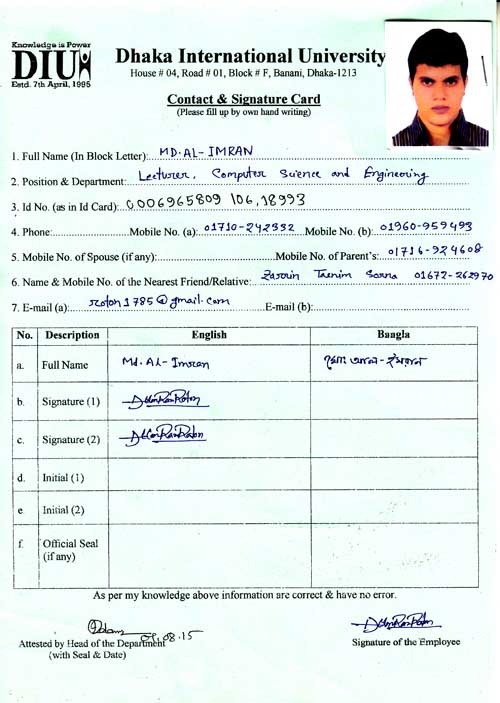 Knowledge is Power
DIU
Estd. 7th April, 1995
Dhaka International University
House # 04, Road # 01, Block # F, Banani, Dhaka-1213
Contact & Signature Card
(Please fill up by own hand writing)
1. Full Name (In Block Letter): MD. AL-IMRAN
2. Position & Department: Lecturer, Computer Science and Engineering
3. Id No. (as in Id Card): 0006965809 106,18993
4. Phone: Mobile No. (a): 01710-242332 Mobile No. (b): 01960-959493
5. Mobile No. of Spouse (if any): Mobile No. of Parent's: 01716-924608
6. Name & Mobile No. of the Nearest Friend/Relative: Zasrin Tasnim 01672-262970
7. E-mail (a): roton1785@gmail.com E-mail (b):
No. Description English Bangla
a. Full Name Md. AL-Imran মোঃ আল-ইমরান
b. Signature (1)
c. Signature (2)
d. Initial (1)
e Initial (2)
f. Official Seal
(if any)
As per my knowledge above information are correct & have no error.
09.08.15
Attested by Head of the Department
(with Seal & Date)
Signature of the Employee